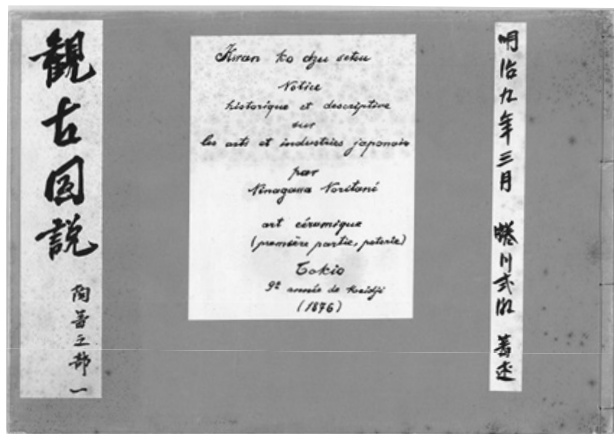 観古図説
陶器之部一
Kwan ko dzu setsu
Notice
historique et descriptive
sur
les arts et industries japonais
par
Ninagawa Noritani
art céramique
(première partie, poterie)
Tokio
9e année de Meidji
(1876)
明治九年三月 蜷川式胤 著述